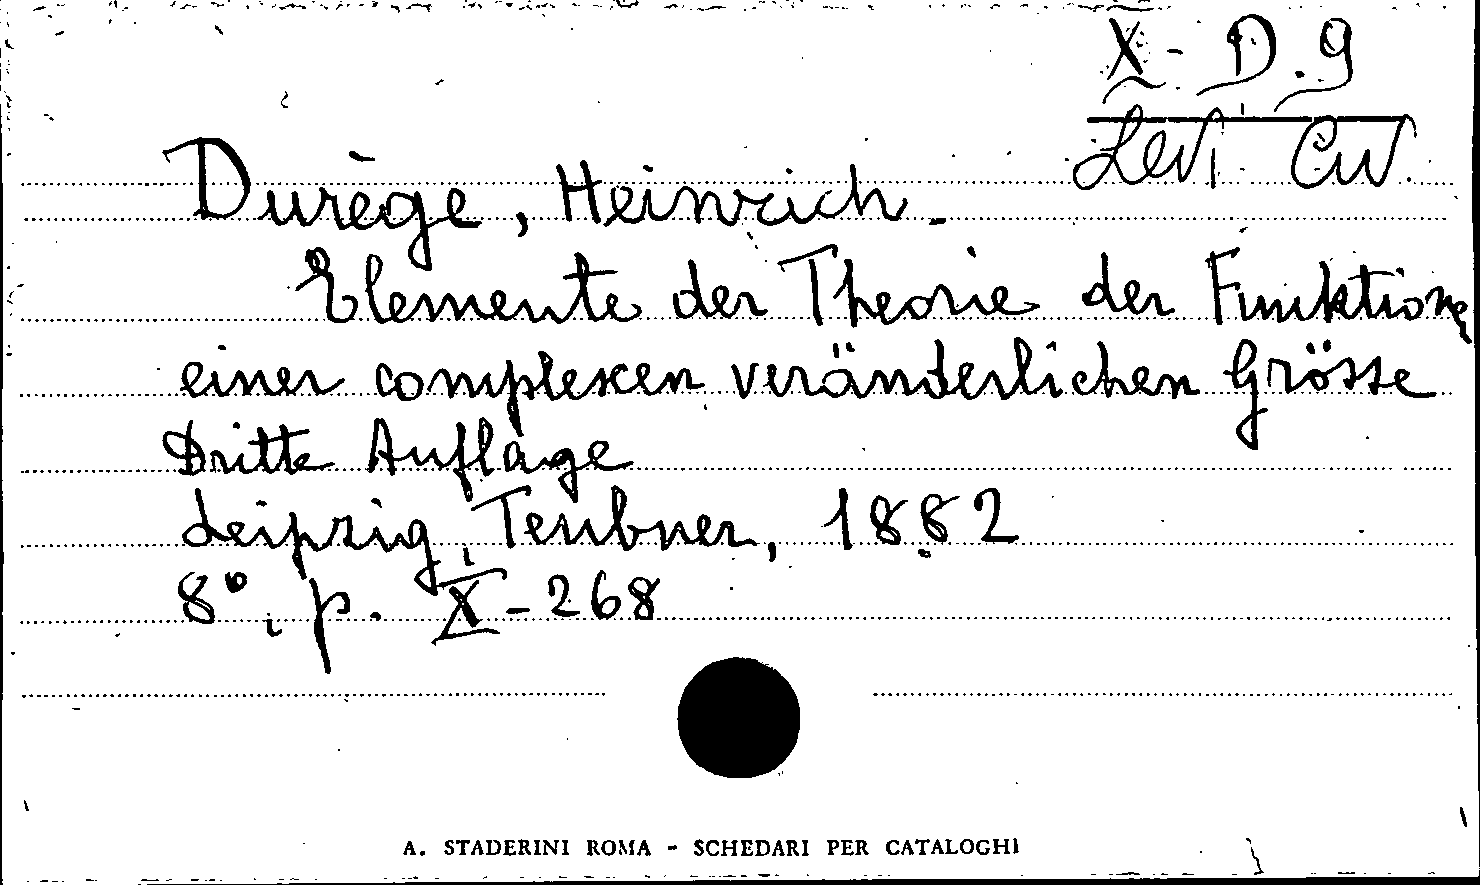 X - D. 9
Levi Civ.
Durège, Heinrich.
Elemente der Theorie der Funktione
einer complexen veränderlichen Grösse
Dritte Auflage
Leipzig, Teubner, 1882
8°, p. X - 268
A. STADERINI ROMA - SCHEDARI PER CATALOGHI